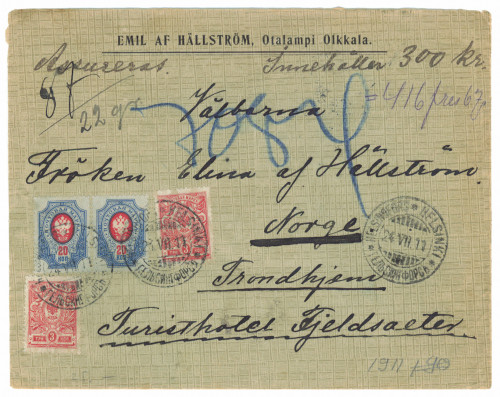 EMIL AF HÄLLSTRÖM, Otalampi Olkkala.
Assureras. Innehåller 300 kr.
22 gr
Välborna
Fröken Elina af Hällström
Norge
Trondhjem
Turisthotel Fjeldsaeter
20 20
3
HELSINKI
24 VII 11
ГЕЛЬСИНГФОРСЪ